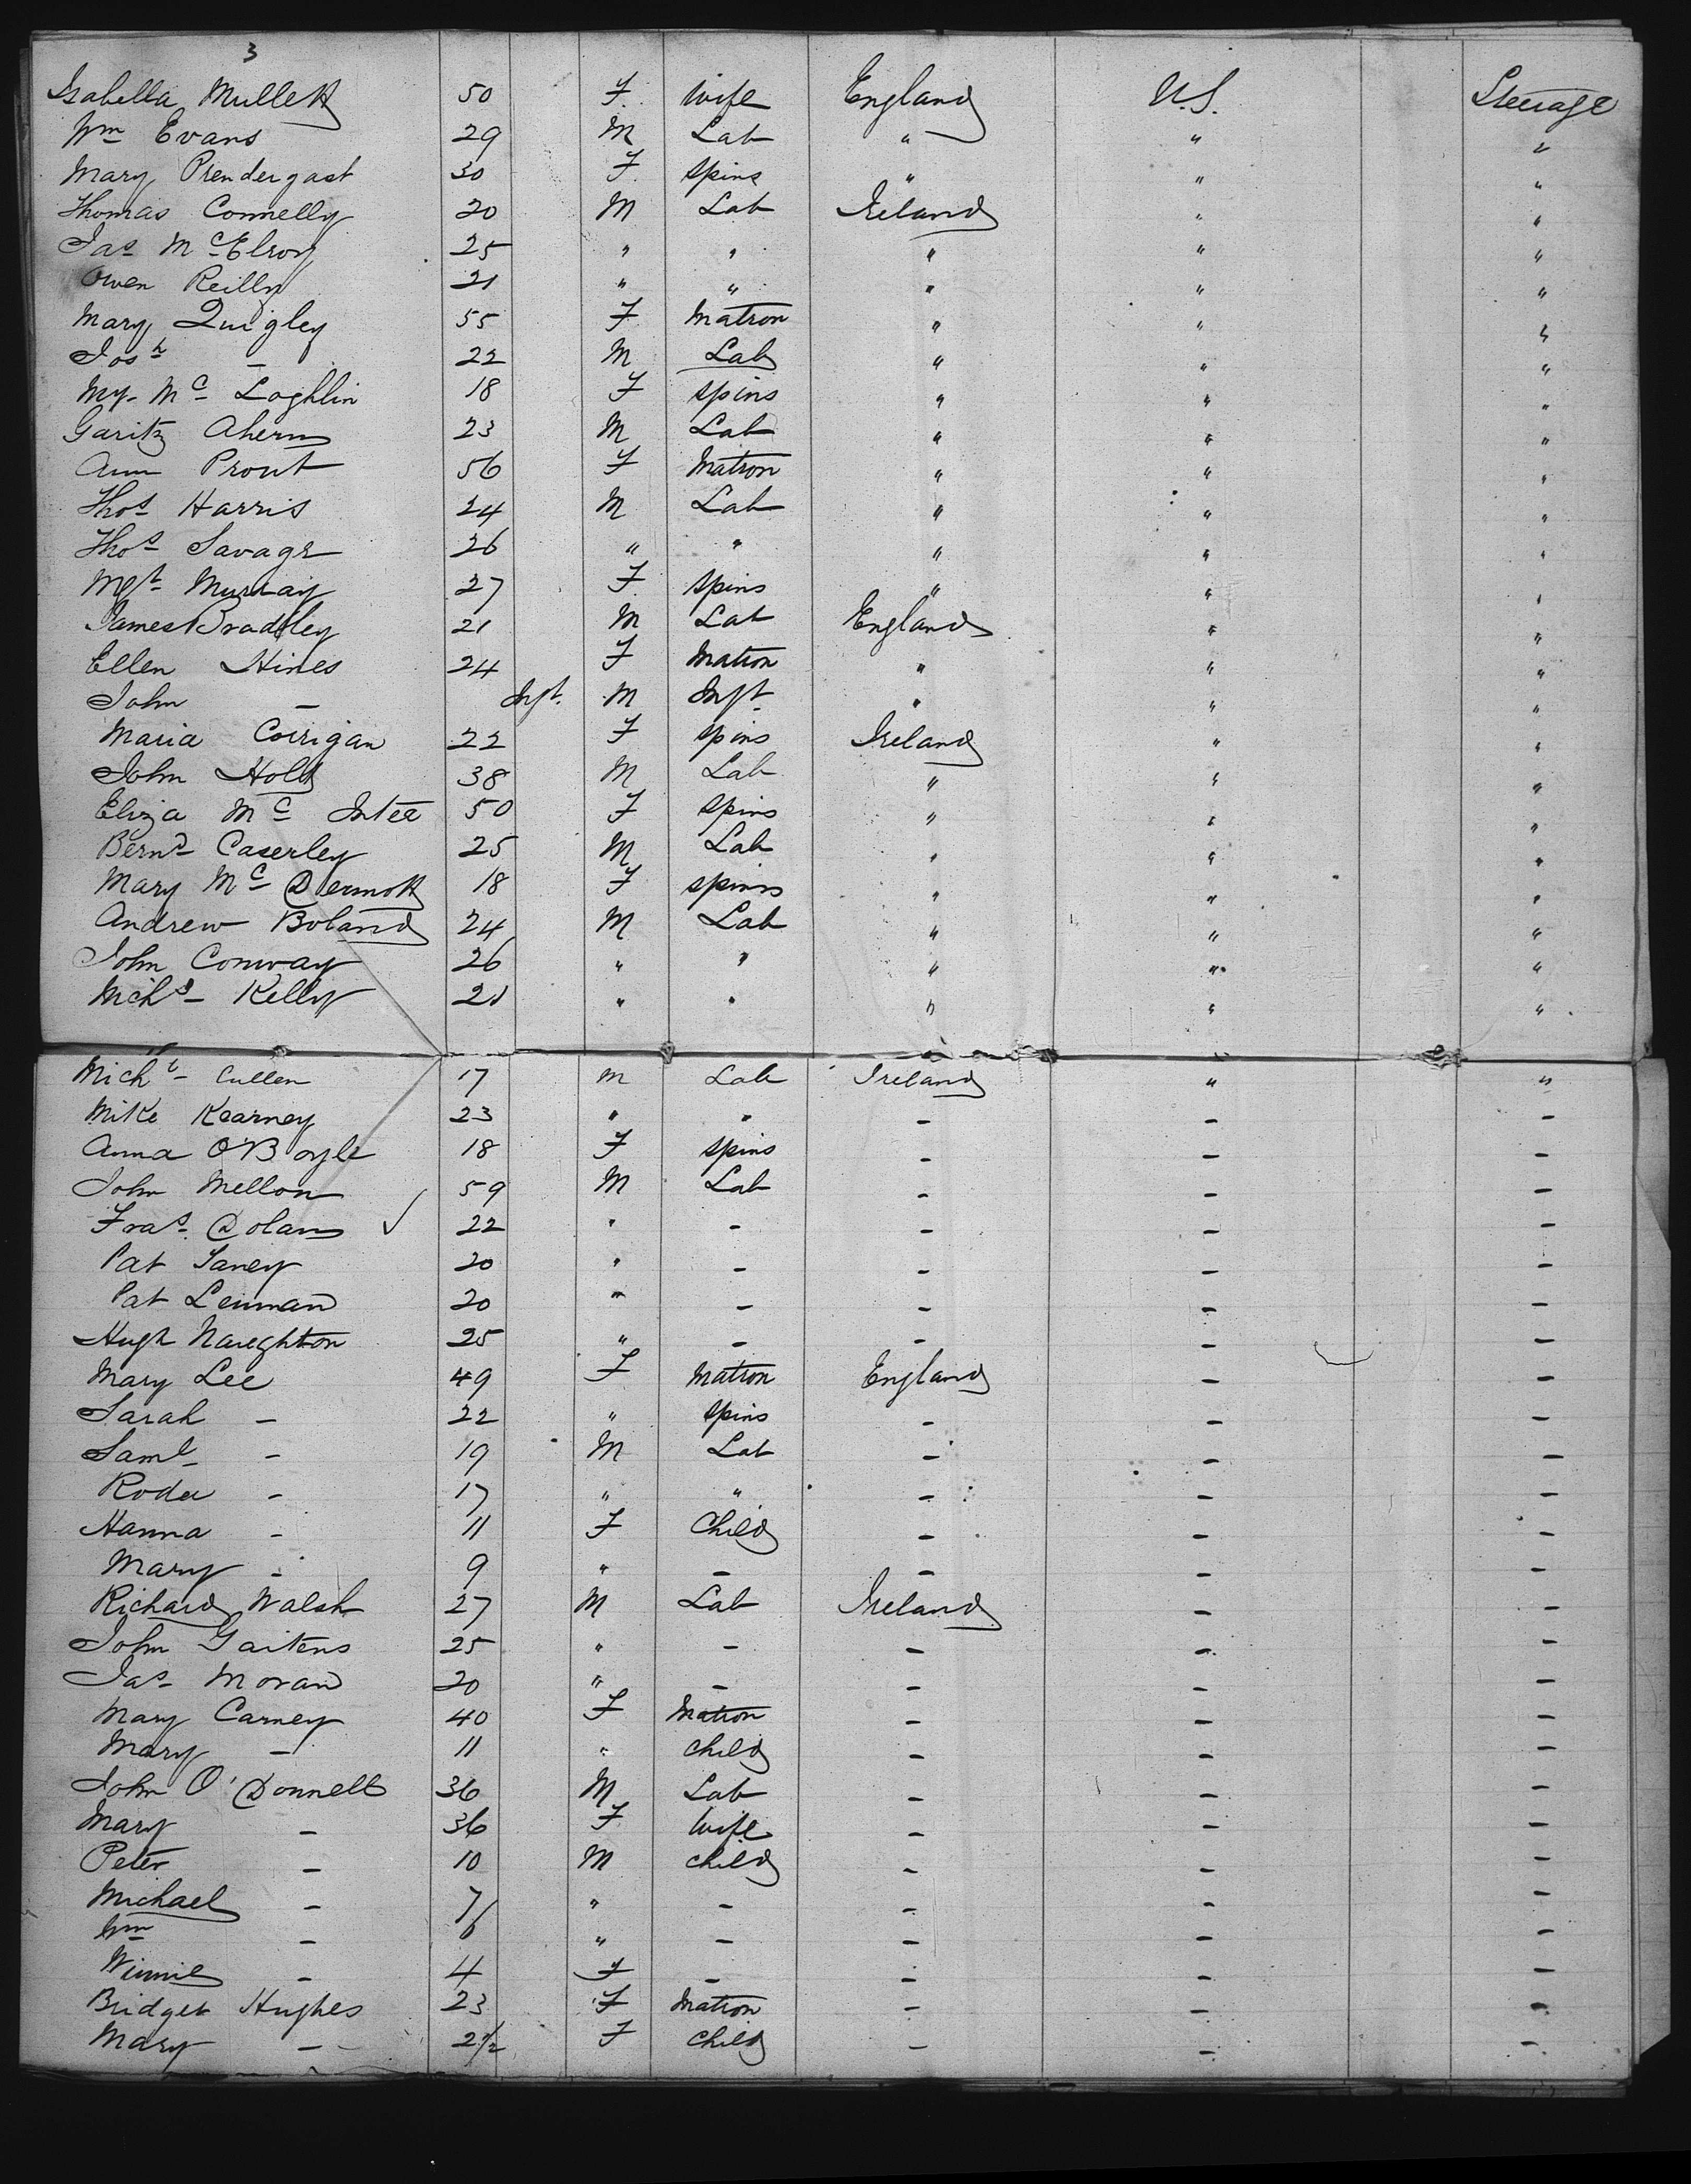 3
Isabella Mullett 50 F. Wife England U.S. Steerage
Wm Evans 29 M Lab " " "
Mary Prendergast 30 F. Spins " " "
Thomas Connelly 20 M Lab Ireland " "
Jas McElroy 25 " " " " "
Owen Reilly 21 " " " " "
Mary Quigley 55 F Matron " " "
Josh - 22 M Lab " " "
My. Mc Loghlin 18 F Spins " " "
Garitz Ahern 23 M Lab " " "
Ann Prout 56 F Matron " " "
Thos Harris 24 M Lab " " "
Thos Savage 26 " " " " "
Mgt Murray 27 F. Spins " " "
James Bradley 21 M Lab England " "
Ellen Hines 24 F Matron " " "
John - Inft. M Inft " " "
Maria Corrigan 22 F Spins Ireland " "
John Holt 38 M Lab " " "
Eliza Mc Intee 50 F Spins " " "
Bernd Caserley 25 M Lab " " "
Mary Mc Dermott 18 F Spins " " "
Andrew Boland 24 M Lab " " "
John Conway 26 " " " " "
Michl Kelly 21 " " " " "
Michl Cullen 17 M Lab Ireland " "
Mike Kearney 23 " " - - -
Anna O'Boyle 18 F Spins - - -
John Mellon 59 M Lab - - -
Fras. Dolan ✓ 22 " - - - -
Pat 20 " - - - -
Pat Lennan 20 " - - - -
Hugh Naughton 25 " - - - -
Mary Lee 49 F Matron England - -
Sarah - 22 " Spins - - -
Saml - 19 M Lab - - -
Roda - 17 " " - - -
Hanna - 11 F Child - - -
Mary - 9 " - - - -
Richard Walsh 27 M Lab Ireland - -
John Gaitens 25 " - - - -
Jas Moran 20 " - - - -
Mary Carney 40 F Matron - - -
Mary - 11 " Child - - -
John O'Donnell 36 M Lab - - -
Mary - 36 F Wife - - -
Peter - 10 M Child - - -
Michael - 7 " - - - -
Wm - 6 " - - - -
Winnie - 4 F - - - -
Bridget Hughes 23 F Matron - - -
Mary - 2 1/2 F Child - - -